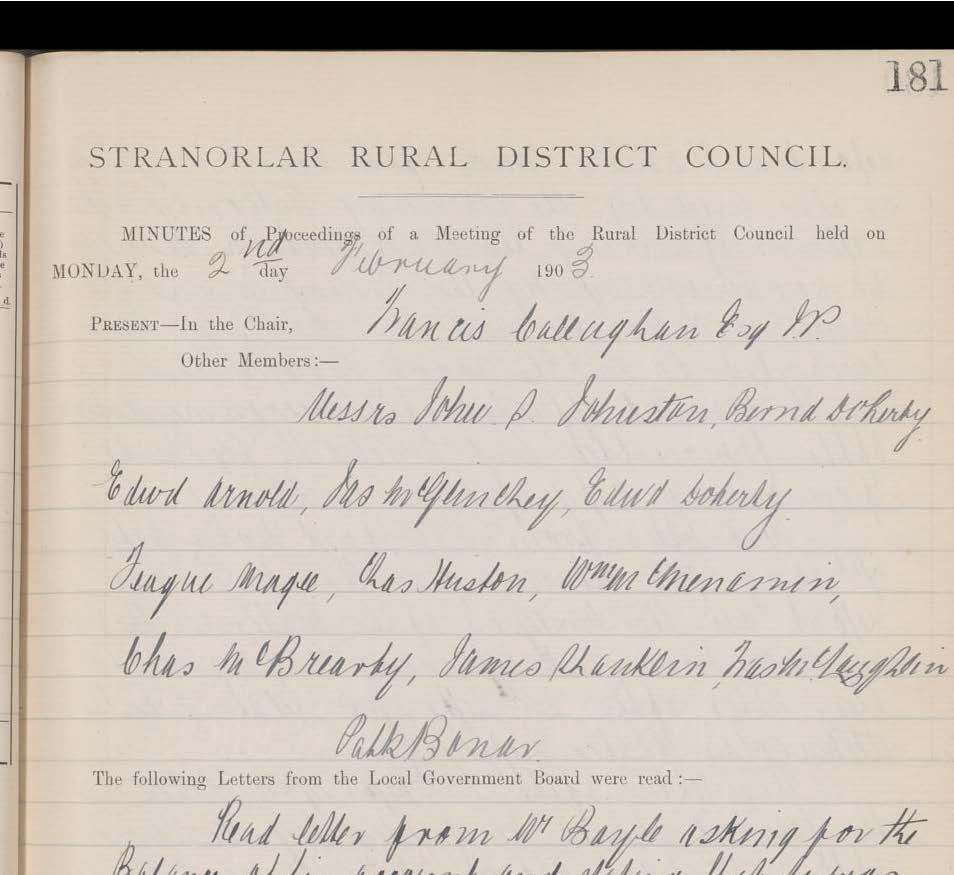 181
STRANORLAR RURAL DISTRICT COUNCIL.
MINUTES of Proceedings of a Meeting of the Rural District Council held on
MONDAY, the 2nd day February 1903.
PRESENT—In the Chair, Francis Callaghan Esq J.P.
Other Members:—
Messrs John S. Johnston, Bernd Doherty
Edwd Arnold, Jas McGlinchey, Edwd Doherty
Teague Magee, Chas Huston, Wm McMenamin,
Chas McBrearty, James, Fras McLaughlin
Patk Bonar.
The following Letters from the Local Government Board were read:—
Read letter from Mr Boyle asking for the
Balance of his account and